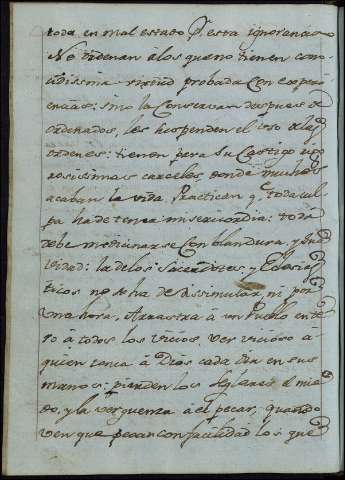 toda en mal estado P. esta ignorencia
No ordenan á los que no tienen com
virtud probada con experi
encias: sino la Conservan despues de
ordenados, les suspenden el uso de las
ordenes: tienen para su Castigo rigo
rosissimas carceles, donde muchos
acaban la vida, Practican q. toda cul
pa ha de tener misericordia: toda
debe medicinarse con blandura, y sua
vidad: la de los Sacerdotes y Eclesias
ticos no se ha de dissimular, ni por
una hora, Arrastra á un Pueblo ente
ro á todos los vicios, ver vicioso á
quien toma á Dios cada dia en sus
manos: pierden los seglares el mie
do, y la verguenza á el pecar, quando
ven que pecan con facilidad los que